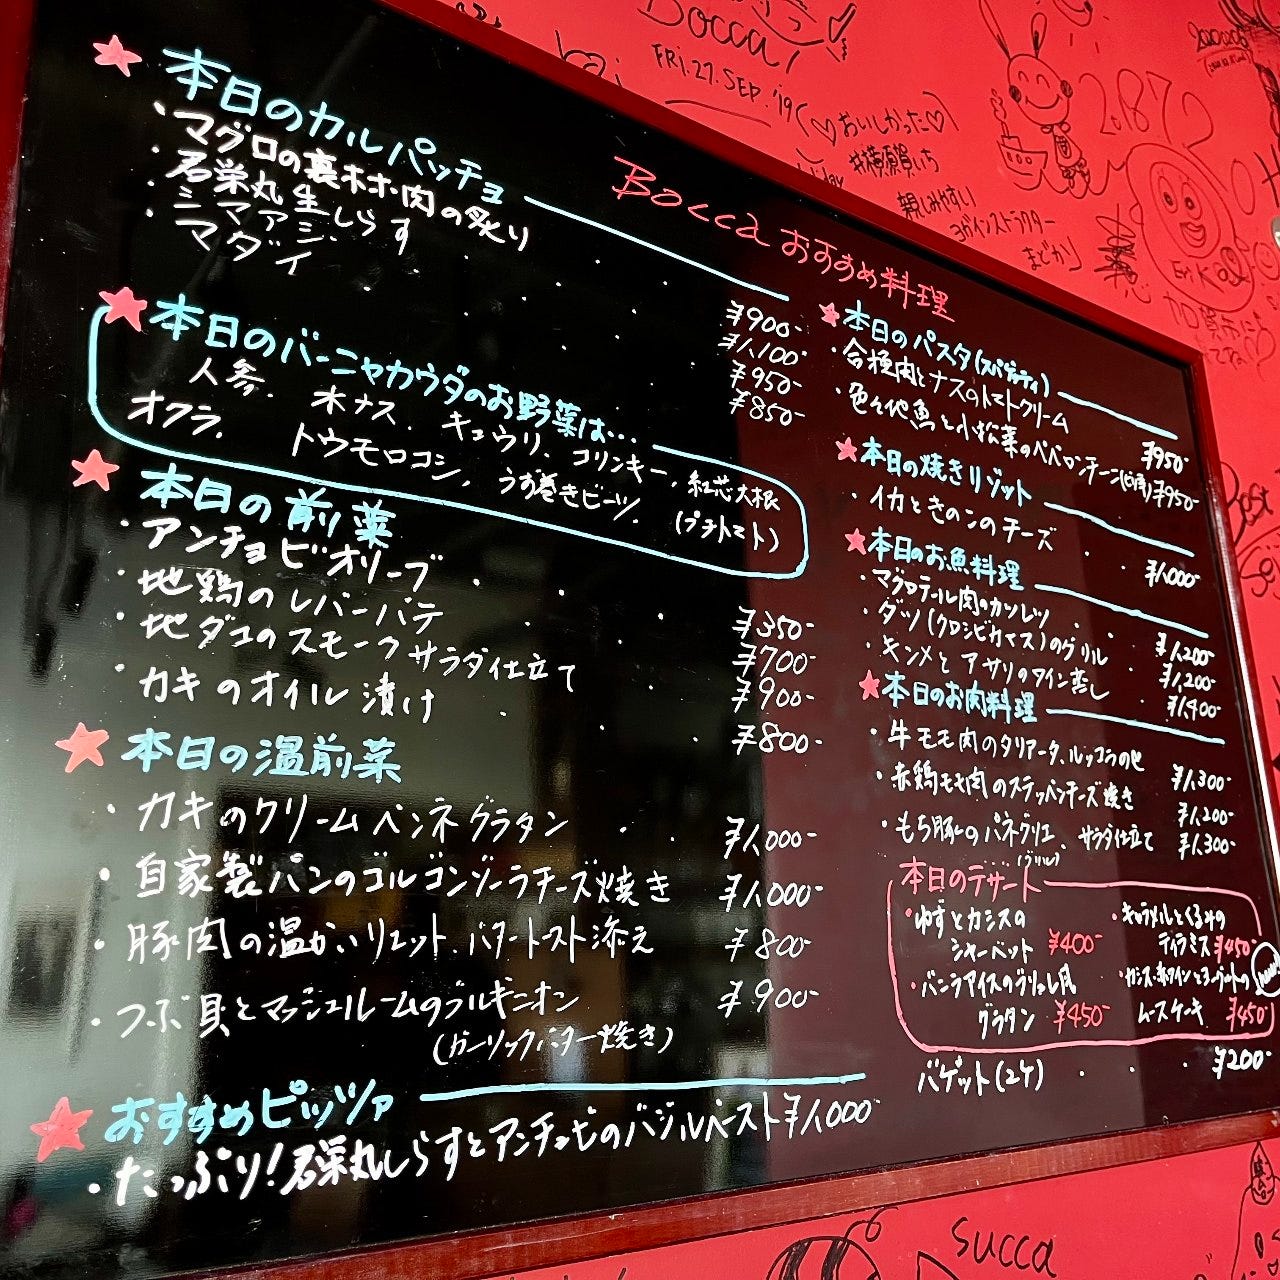 Bocca
FRI.27.SEP.'19
♡おいしかった♡
#横須賀いち
親しみやすい
ヨガインストラクター
まどか
2872
Bocca おすすめ料理
本日のカルパッチョ
・マグロの裏ホホ肉の炙り ¥900-
・君栄丸生しらす ¥1,100-
・シマアジ ¥950-
・マダイ ¥850-
本日のバーニャカウダのお野菜は…
人参. 水ナス. キュウリ、コリンキー, 紅芯大根
オクラ. トウモロコシ, うず巻きビーツ. (プチトマト)
本日の前菜
・アンチョビオリーブ ¥350-
・地鶏のレバーパテ ¥700-
・地ダコのスモークサラダ仕立て ¥900-
・カキのオイル漬け ¥800-
本日の温前菜
・カキのクリームペンネグラタン ¥1,000-
・自家製パンのゴルゴンゾーラチーズ焼き ¥1,000-
・豚肉の温かいリエット、バタートースト添え ¥800-
・つぶ貝とマッシュルームのブルギニオン ¥900-
(ガーリックバター焼き)
おすすめピッツァ
・たっぷり!君栄丸しらすとアンチョビのバジルペースト ¥1,000-
本日のパスタ(スパゲッティ)
・合挽肉とナスのトマトクリーム ¥950-
・色々地魚と小松菜のペペロンチーニ ¥950-
本日の焼きリゾット
・イカときのこのチーズ ¥1,000-
本日のお魚料理
・マグロテール肉のカツレツ ¥1,200-
・ダツ(クロシビカマス)のグリル ¥1,200-
・キンメとアサリのワイン蒸し ¥1,400-
本日のお肉料理
・牛モモ肉のタリアータ、ルッコラのせ ¥1,300-
・赤鶏モモ肉のステッペンチーズ焼き ¥1,200-
・もち豚のパネグリエ、サラダ仕立て ¥1,300-
(グリル)
本日のデザート
・ゆずとカシスの
シャーベット ¥400-
・バニラアイスのブリュレ風
グラタン ¥450-
・キャラメルとくるみの
ティラミス ¥450-
・カシス・赤ワインとヨーグルトの
ムースケーキ ¥450-
new!
バゲット(2ケ) ¥200-
Best
succa